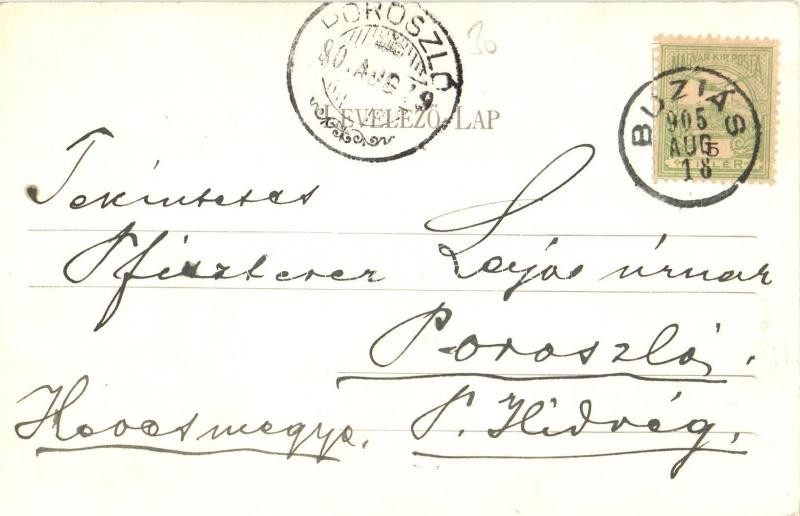 POROSZLÓ
AUG 19
30
MAGYAR KIR. POSTA
BUZIÁS
905
AUG
18
5
FILLÉR
LEVELEZŐ-LAP
Tekintetes
Pfiszterer Lajos úrnak
Poroszló.
Hevesmegye. P. Hidvég.